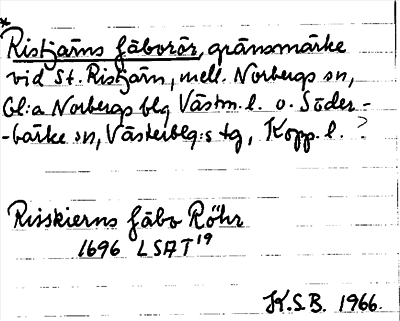 *
Ristjärns fäborör, gränsmärke
vid St. Ristjärn, mell. Norbergs sn,
Gl:a Norbergs blg Västm. l. o. Söder-
-bärke sn, Västerblg:s tg, Kopp. l. ?
Risskierns fäbo Röhr
1696 LSAT 19
K.S.B. 1966.